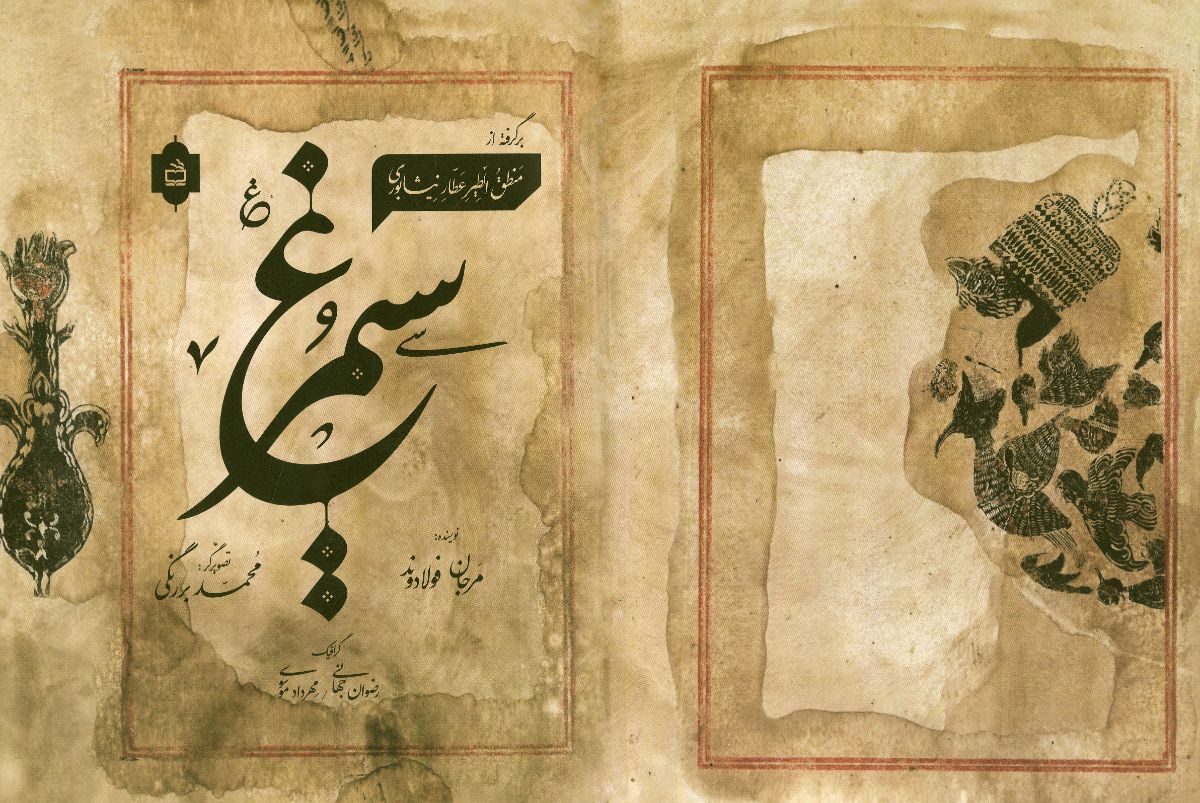 برگرفته از
مَنطقُ الطّیرِ عطّارِ نیشابوری
سی مرغ و سیمرغ
نویسنده:
مَرجان فولادوند
تصویرگر:
مُحمّد برنگی
گرافیک
رضوان جهانی / مهرداد موسوی